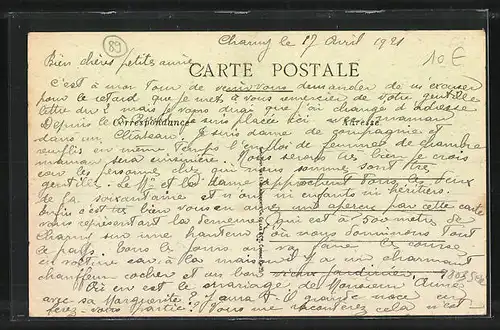 89
Charny le 17 Avril 1921
10 E
Bien chères petites amies
CARTE POSTALE
C'est à mon tour de venir vous demander de m'excuser
pour le retard que je mets à vous remercier de votre gentille
lettre du mais je vous dirai que j'ai changé d'adresse
Depuis le je suis placée ici avec maman
Correspondance
Adresse
dans un Château. Je suis dame de compagnie et
remplis en même temps l'emploi de femme de chambre
maman sera cuisinière. Nous serons très bien je crois
car les personnes chez qui nous sommes sont très
gentilles. Le Mr et la Dame approchent tous les deux
de la soixantaine et n'ont ni enfants ni héritiers.
Enfin c'est très bien vous en aurez une aperçu par cette carte
vous représentant la demeure qui est à 500 mètres de
Charny sur une hauteur d'où nous dominons tout
le pays. Tous les jours on va faire la course
en voiture car à la maison il y a un charmant
chauffeur cocher et un bon vieux jardinier.
Où en est le mariage de Monsieur Aimé
avec sa Marguerite? Y aura-t-il grande noce
ferez-vous partie? Vous me raconterez cela n'est